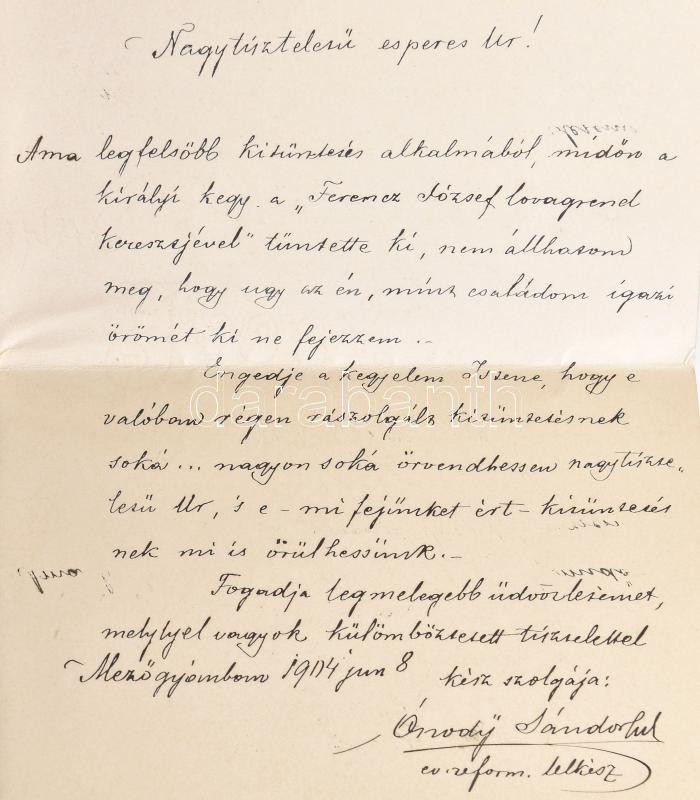 Nagytiszteletű esperes Ur!
Ama legfelsőbb kitüntetés alkalmából, midőn a
királyi kegy a „Ferencz József lovagrend
keresztjével" tüntette ki, nem állhatom
meg, hogy ugy az én, mint családom igazi
örömét ki ne fejezzem.-
Engedje a kegyelem Istene, hogy e
valóban régen rászolgált kitüntetésnek
soká... nagyon soká örvendhessen nagytiszte„
letű Ur, 's e - mi fejünket ért - kitüntetés
nek mi is örülhessünk.-
Fogadja legmelegebb üdvözletemet,
melylyel vagyok külömböztetett tisztelettel
Mezőgyánban 1904 jun 8 kész szolgája:
Ónody Sándor
ev. reform. lelkész
darabanth